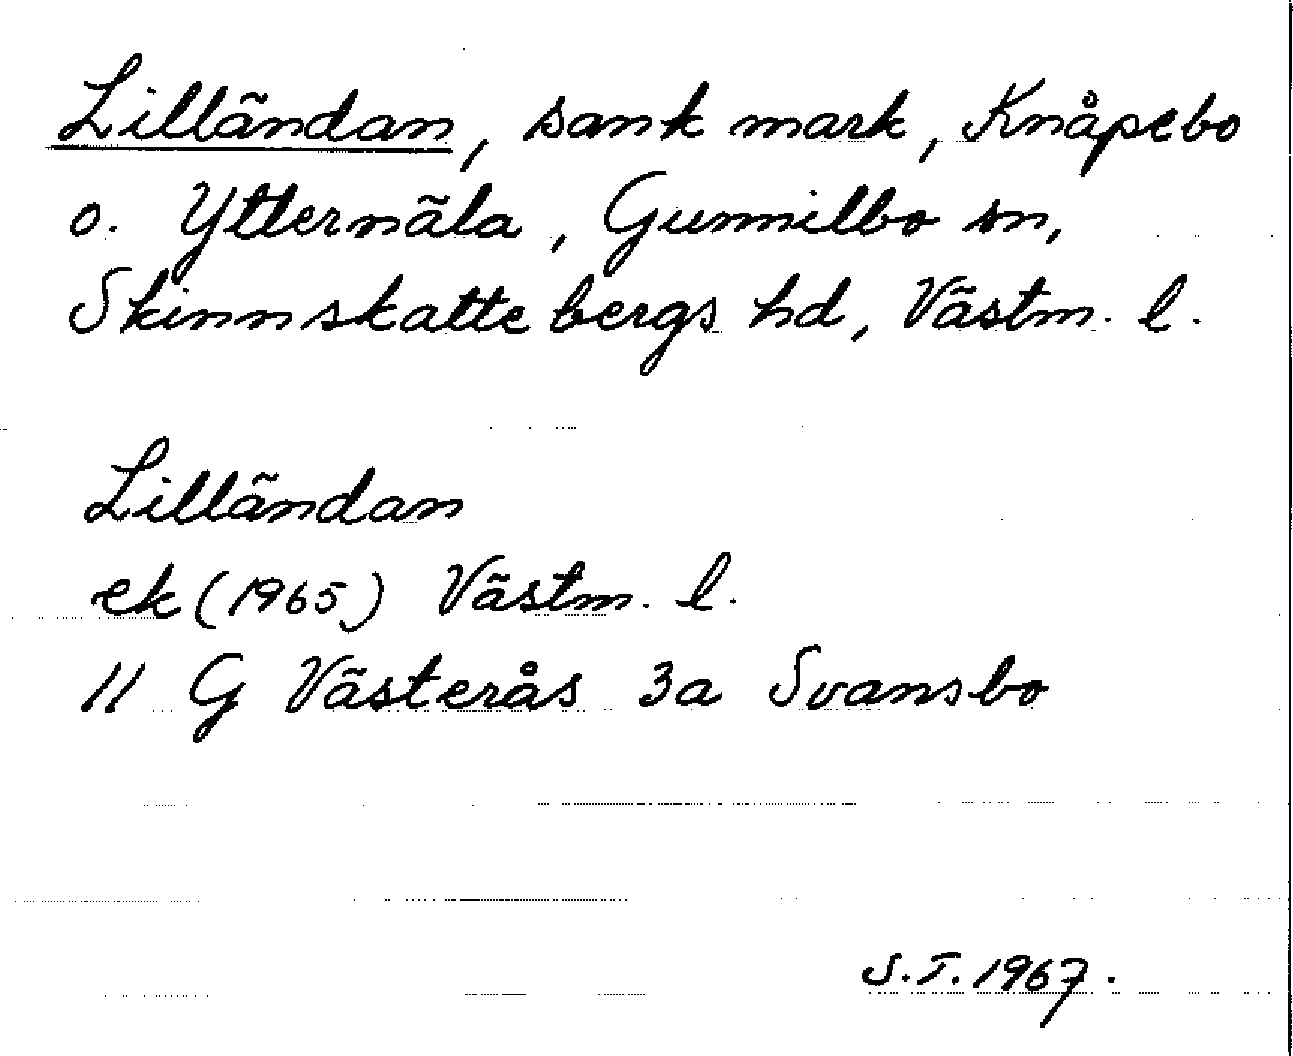 Lilländan, sank mark, Knåpebo
o. Ytternäla, Gunnilbo sn,
Skinnskattebergs hd, Västm. l.
Lilländan
ek (1965) Västm. l.
11 G Västerås 3a Svansbo
S.T. 1967.